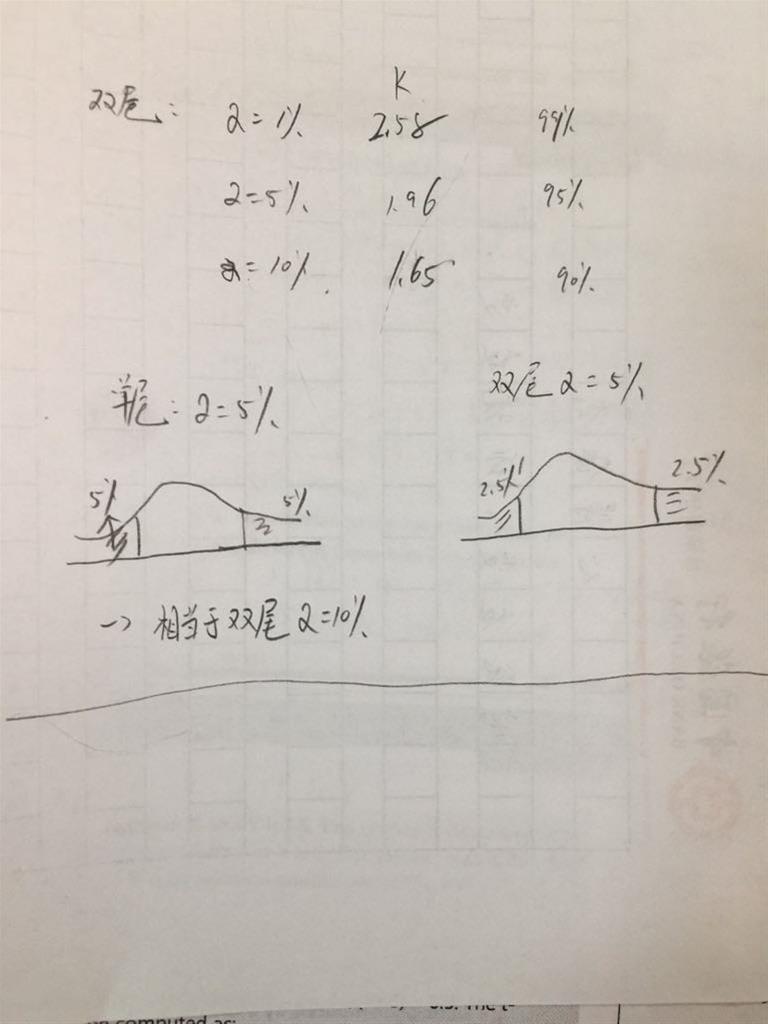 K
双尾: α=1% 2.58 99%
α=5% 1.96 95%
α=10% 1.65 90%
单尾: α=5%
双尾 α=5%
5% 5%
2.5% 2.5%
→ 相当于双尾 α=10%
computed as: